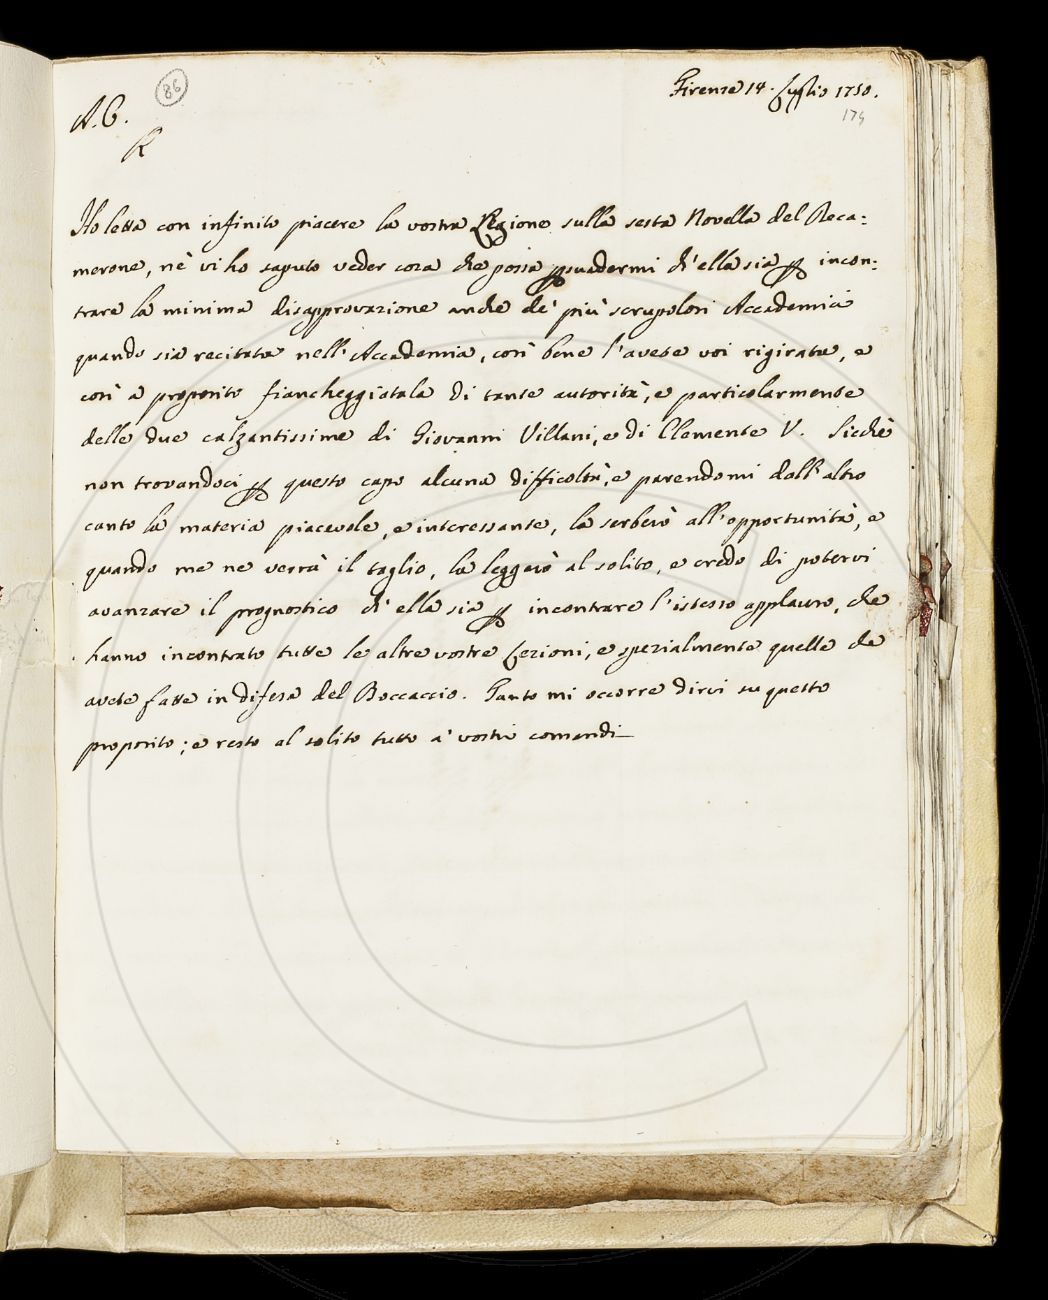 86
Firenze 14. Luglio 1750.
A. C.
174
R
Ho letta con infinito piacere la vostra Lezione sulla sesta Novella del Deca=
merone, nè vi ho saputo veder cosa che possa persuadermi ch'ella sia per incon=
trare la minima disapprovazione anche de' più scrupolosi Accademici
quando sia recitata nell'Accademia, così bene l'avete voi rigirata, e
così a proposito fiancheggiatala di tante autorità, e particolarmente
delle due calzantissime di Giovanni Villani, e di Clemente V. Sicchè
non trovandoci per questo capo alcuna difficoltà, e parendomi dall'altro
canto la materia piacevole, e interessante, la serberò all'opportunità, e
quando me ne verrà il taglio, la leggerò al solito, e credo di potervi
avanzare il prognostico ch'ella sia per incontrare l'istesso applauso, che
hanno incontrato tutte le altre vostre Lezioni, e spezialmente quelle che
avete fatte in difesa del Boccaccio. Tanto mi occorre dirvi su questo
proposito; e resto al solito tutto a' vostri comandi